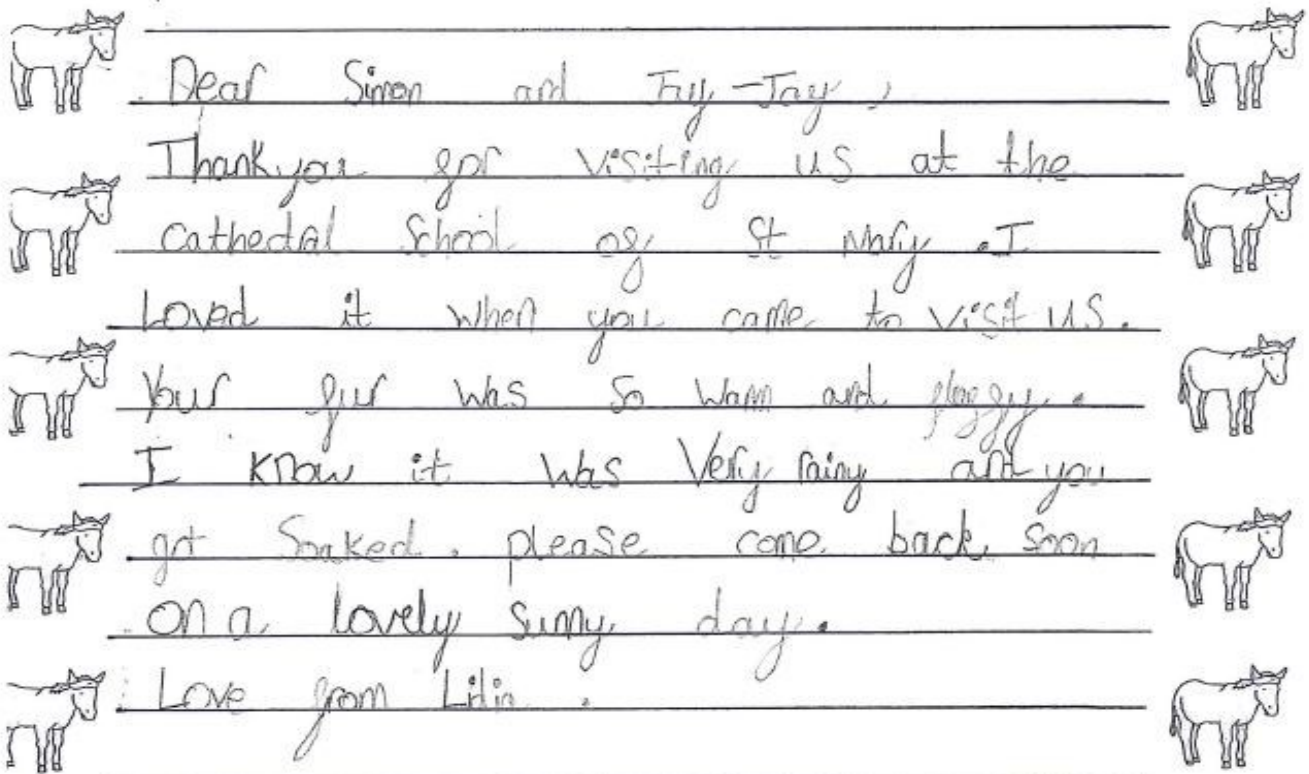 Dear Simon and Jay-Jay,
Thankyou for visiting us at the
Cathedral School of St Mary. I
Loved it when you came to visit us.
Your fur was so warm and fluffy.
I know it was Very rainy and you
got Soaked. please come back soon
on a lovely sunny day.
Love from Lidia.